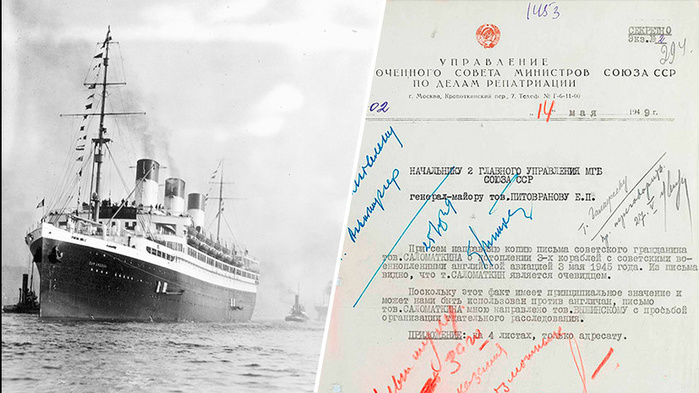 1453
СЕКРЕТНО
Экз.№ 2
294
УПРАВЛЕНИЕ
ОЧЕННОГО СОВЕТА МИНИСТРОВ СОЮЗА ССР
ПО ДЕЛАМ РЕПАТРИАЦИИ
г. Москва, Кропоткинский пер., 7. Телеф. № Г-6-11-00
02
"14" мая 1949 г.
НАЧАЛЬНИКУ 2 ГЛАВНОГО УПРАВЛЕНИЯ МГБ
СОЮЗА ССР
генерал-майору тов. ПИТОВРАНОВУ Е.П.
При сем направляю копию письма советского гражданина
тов. САЛОМАТКИНА о потоплении 3-х кораблей с советскими во-
еннопленными английской авиацией 3 мая 1945 года. Из письма
видно, что т. САЛОМАТКИН является очевидцем.
Поскольку этот факт имеет принципиальное значение и
может нами быть использован против англичан, письмо
тов. САЛОМАТКИНА мною направлено тов. ВЫШИНСКОМУ с просьбой
организации тщательного расследования.
ПРИЛОЖЕНИЕ: на 4 листах, только адресату.